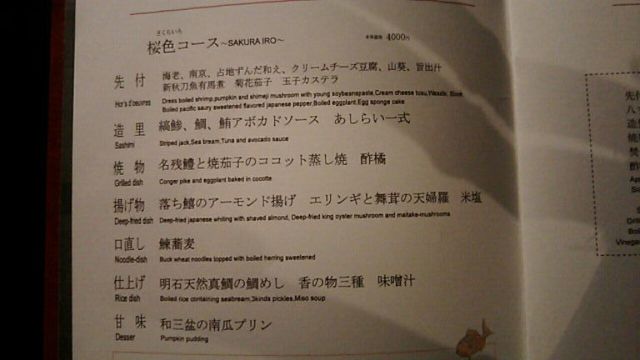 さくらいろ
桜色コース ~SAKURA IRO~ 4000円
先付 海老、南京、占地ずんだ和え、クリームチーズ豆腐、山葵、旨出汁
新秋刀魚有馬煮 菊花茄子 玉子カステラ
Hor's d'oeuvres Dress boiled shrimp,pumpkin and shimeji mushroom with young soybeanspaste,Cream cheese tofu,Wasabi,
Boiled pacific saury sweetened flavored japanese pepper,Boiled eggplant,Egg sponge cake
造里 縞鯵、鯛、鮪アボカドソース あしらい一式
Sashimi Striped jack,Sea bream,Tuna and avocado sauce
焼物 名残鱧と焼茄子のココット蒸し焼 酢橘
Grilled dish Conger pike and eggplant baked in cocotte
揚げ物 落ち鱚のアーモンド揚げ エリンギと舞茸の天婦羅 米塩
Deep-fried dish Deep-fried japanese whiting with shaved almond, Deep-fried king oyster mushroom and maitake-mushrooms
口直し 鰊蕎麦
Noodle-dish Buck wheat noodles topped with boiled herring sweetened
仕上げ 明石天然真鯛の鯛めし 香の物三種 味噌汁
Rice dish Boiled rice containing seabream,3kinds pickles,Miso soup
甘味 和三盆の南瓜プリン
Desser Pumpkin pudding